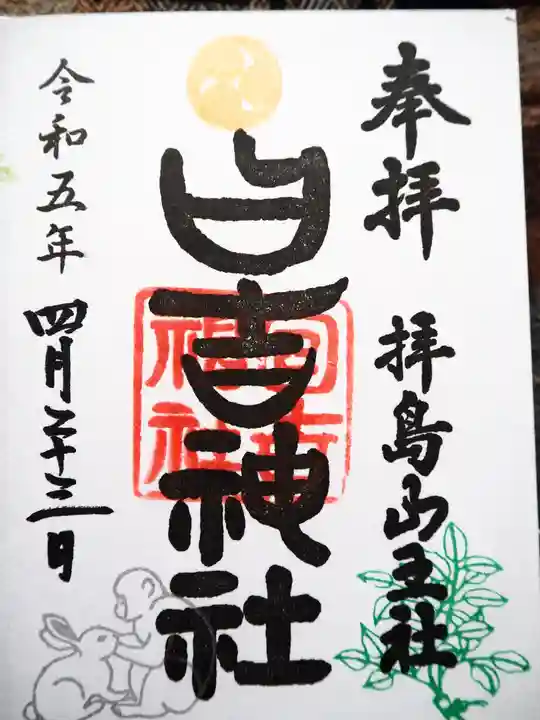 奉拝
拝島山王社
日吉神社
日吉神社
令和五年
四月二十三日